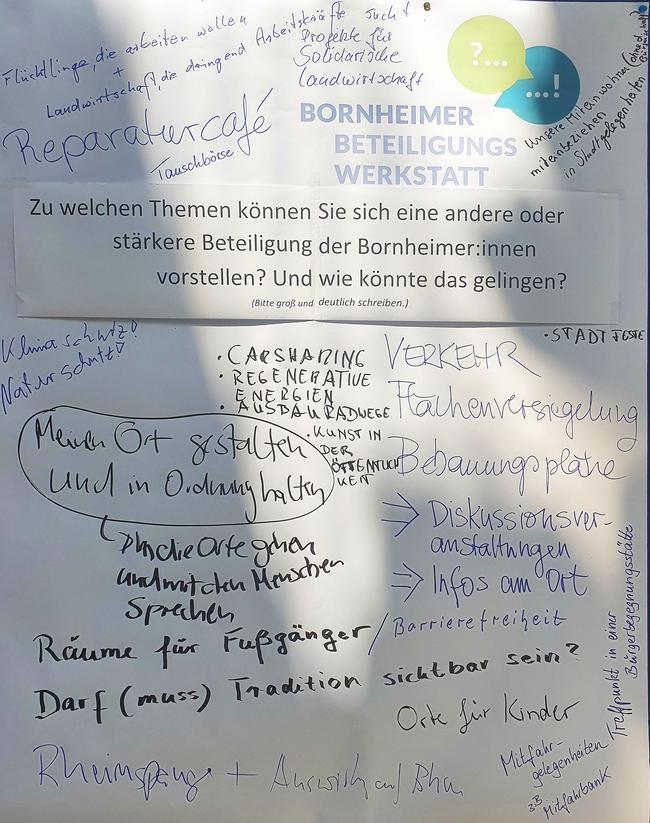 Flüchtlinge, die arbeiten wollen
+
Landwirtschaft, die dringend Arbeitskräfte sucht!
Projekte für
Solidarische
Landwirtschaft
Reparaturcafé
Tauschbörse
?...
...!
BORNHEIMER
BETEILIGUNGS
WERKSTATT
Unsere Miteinwohner
miteinbeziehen
in Stadtgelegenheiten
Zu welchen Themen können Sie sich eine andere oder
stärkere Beteiligung der Bornheimer:innen
vorstellen? Und wie könnte das gelingen?
(Bitte groß und deutlich schreiben.)
Klimaschutz!
Naturschutz!
• CARSHARING
• REGENERATIVE
ENERGIEN
• AUSBAU RADWEGE
• KUNST IN
DER
ÖFFENTLICH
KEIT
• STADTFESTE
VERKEHR
Flächenversiegelung
Bebauungspläne
⇒ Diskussionsver-
anstaltungen
⇒ Infos am Ort
Meinen Ort gestalten
und in Ordnung halten
↳ In die Orte gehen
und mit den Menschen
Sprechen
Räume für Fußgänger / Barrierefreiheit
Darf (muss) Tradition sichtbar sein?
Orte für Kinder
Treffpunkt in einer
Bürgerbegegnungsstätte
Mitfahr-
gelegenheiten
zB
Mitfahrbank
Rheinspange + Auswirk auf